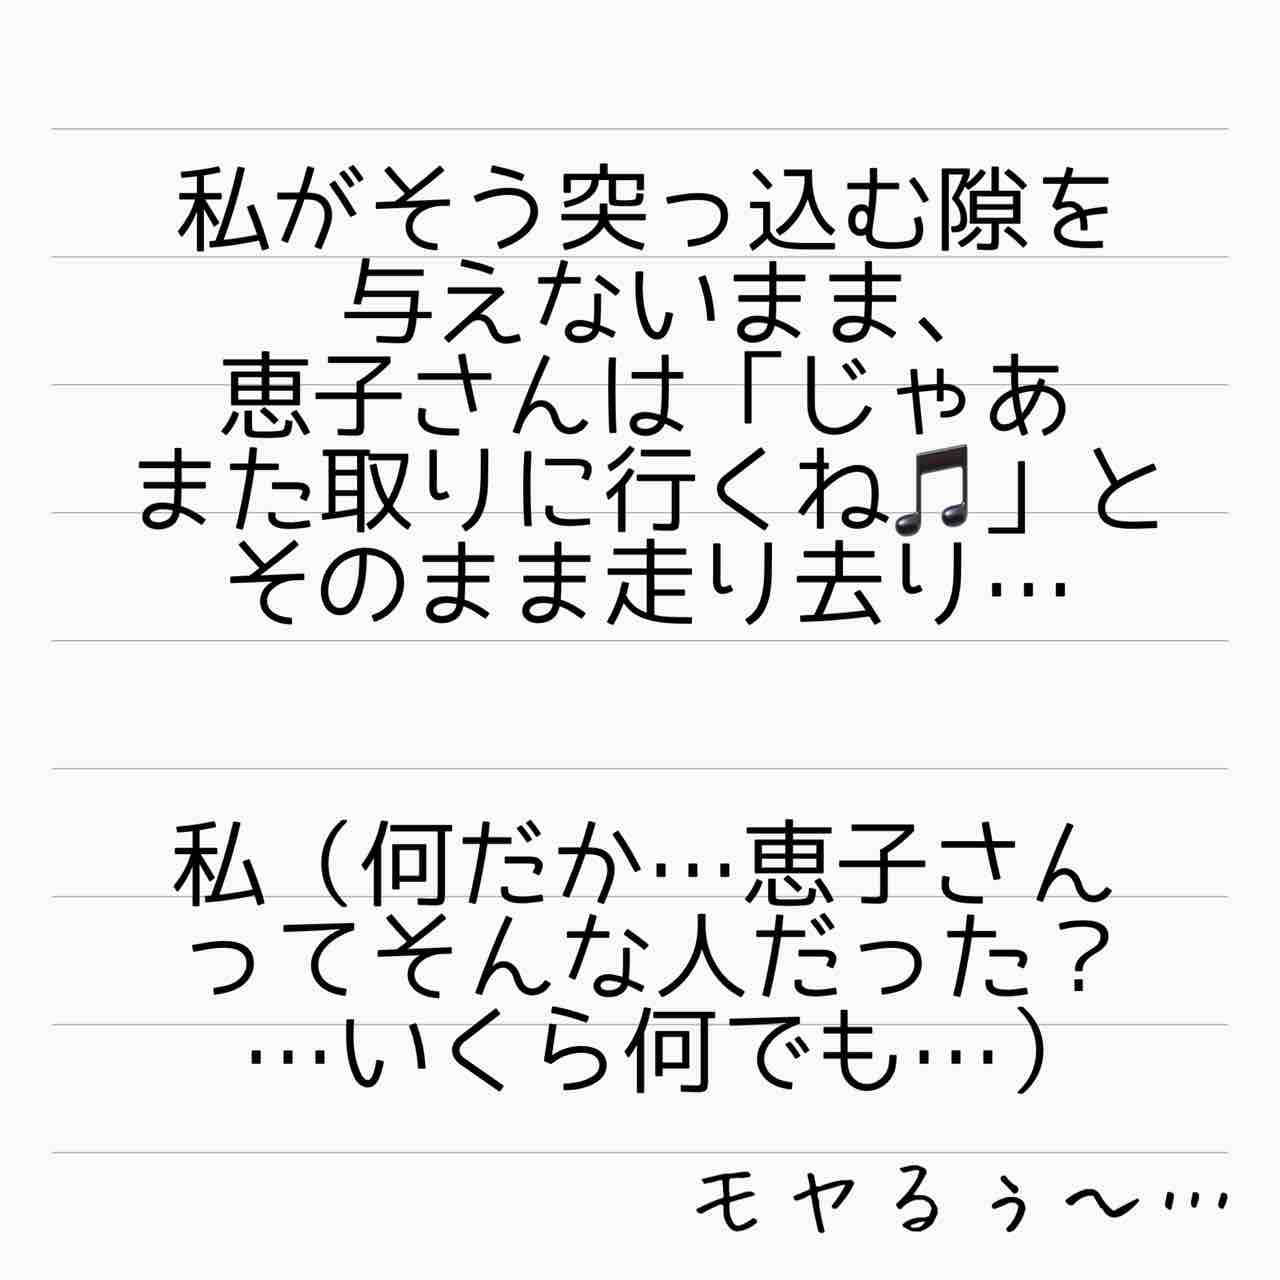 私がそう突っ込む隙を
与えないまま、
恵子さんは「じゃあ
また取りに行くね🎵」と
そのまま走り去り…
私（何だか…恵子さん
ってそんな人だった？
…いくら何でも…）
モヤるぅ〜…